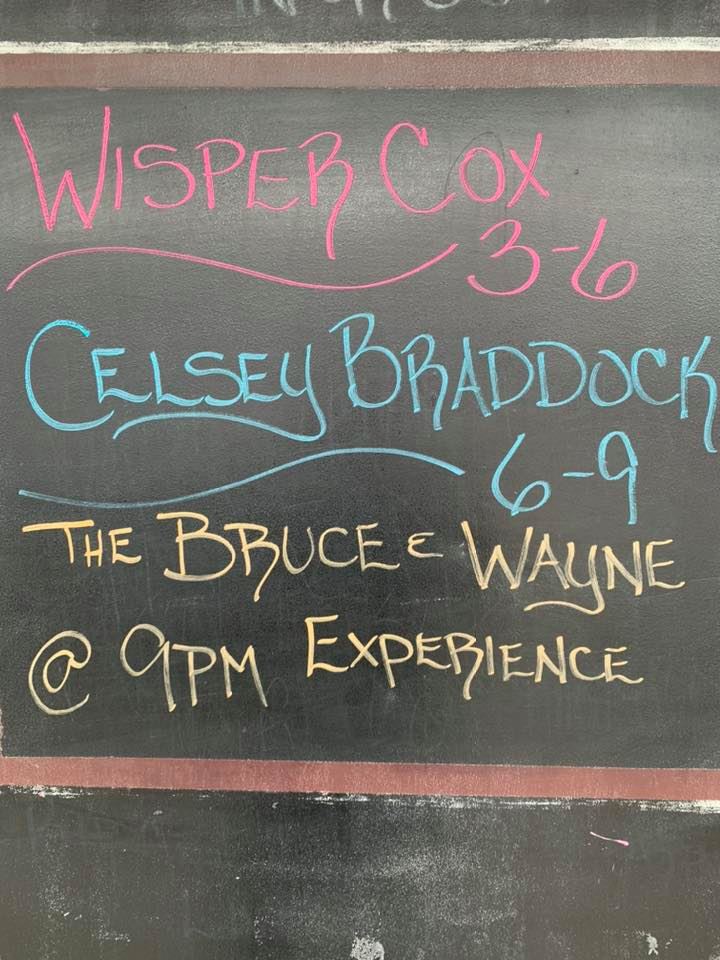 WISPER COX
3-6
CELSEY BRADDOCK
6-9
THE BRUCE & WAYNE
@ 9PM EXPERIENCE